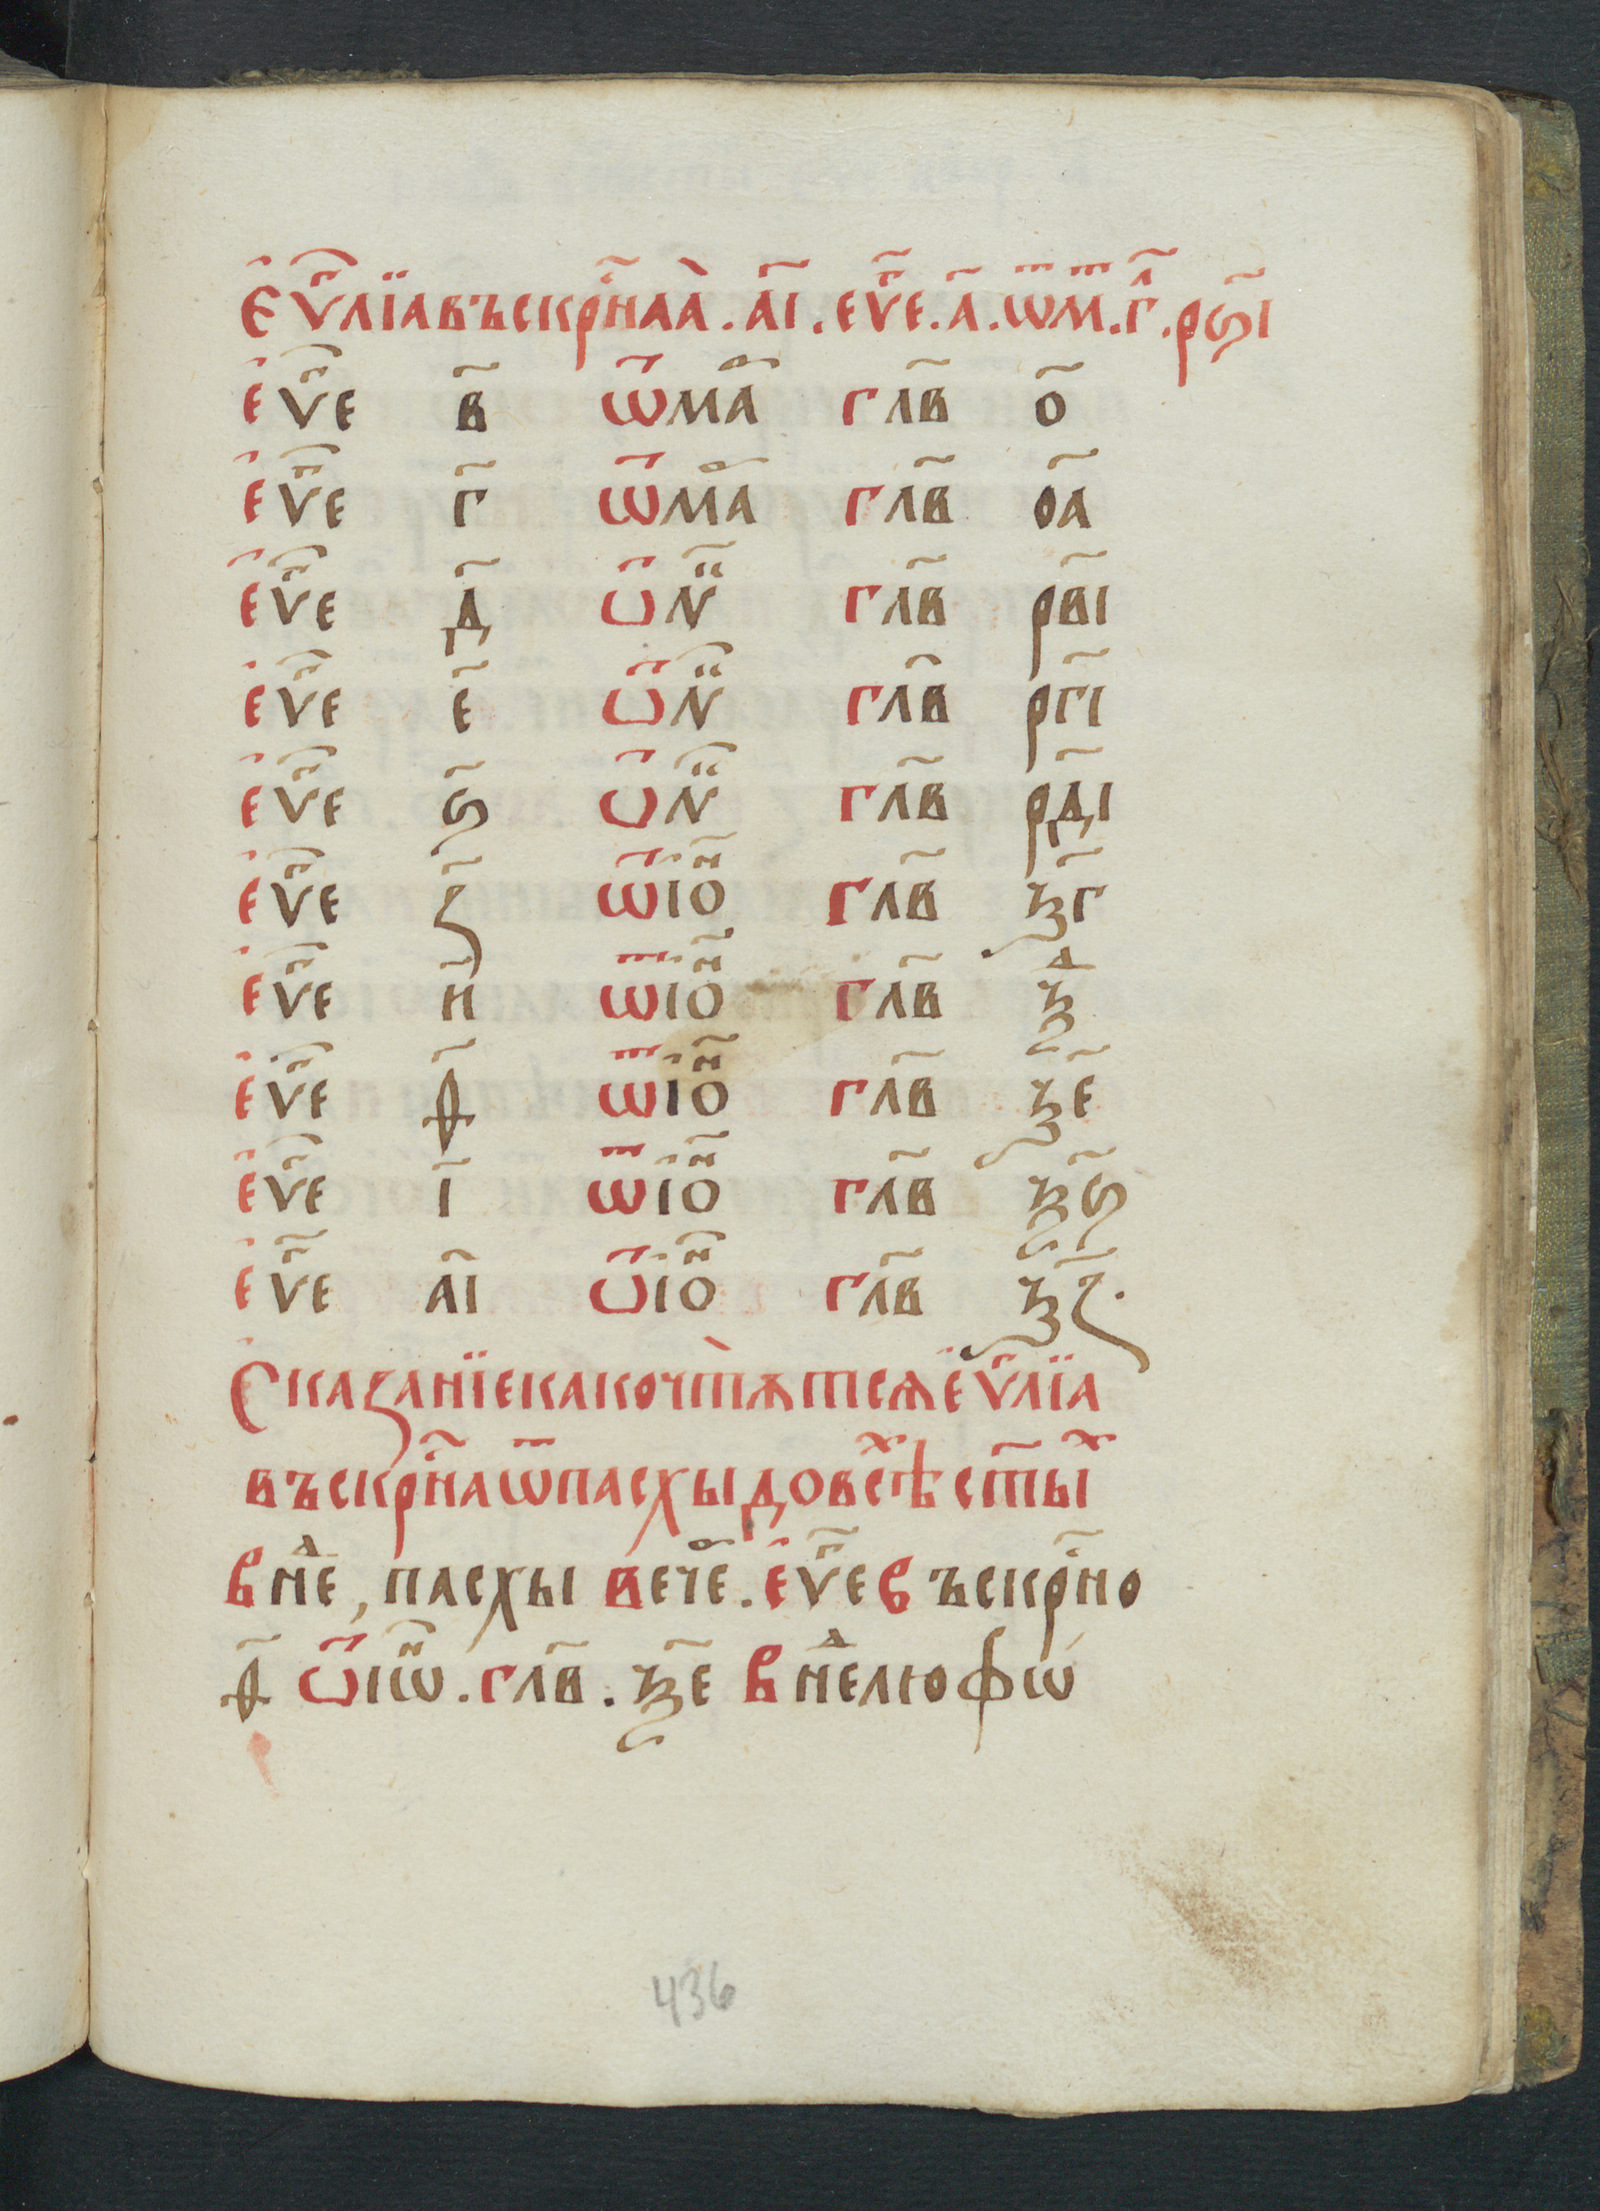 Єѵ҃лїа въскр҃наа̀ . а҃і . еѵ҃е . а҃ . ѿ м . г҃ . рѕ҃і
еѵ҃е в҃ ѿ ма҃ гл҃в о҃
еѵ҃е г҃ ѿ ма҃ гл҃в о҃а
еѵ҃е д҃ ѿ л҃ гл҃в рв҃і
еѵ҃е е҃ ѿ л҃ гл҃в рг҃і
еѵ҃е ѕ҃ ѿ л҃ гл҃в рд҃і
еѵ҃е з҃ ѿ іо҃ гл҃в ѯ҃г
еѵ҃е и҃ ѿ іо҃ гл҃в ѯд
еѵ҃е ѳ҃ ѿ іо҃ гл҃в ѯ҃е
еѵ҃е і҃ ѿ іо҃ гл҃в ѯѕ҃
еѵ҃е а҃і ѿ іо҃ гл҃в ѯз҃ .
Сказанїе како чтѫтсѧ еѵ҃лїа
въскр҃на ѿ пасхы до всѣⷯ ст҃ыⷯ
в неⷣ, пасхы вече . еѵ҃е въскр҃но
ѳ҃ ѿ іѡ҃ . гл҃в . ѯ҃е в неⷣлю фѡ
436